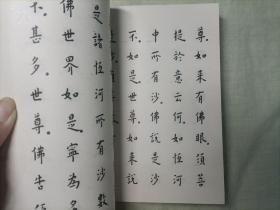 尊。如來有佛眼。須菩
提。於意云何。如恒河
中所有沙。佛說是沙
不。如是世尊。如來說
是諸恒河所有沙數
佛世界如是。寧為多
不。甚多。世尊。佛告須